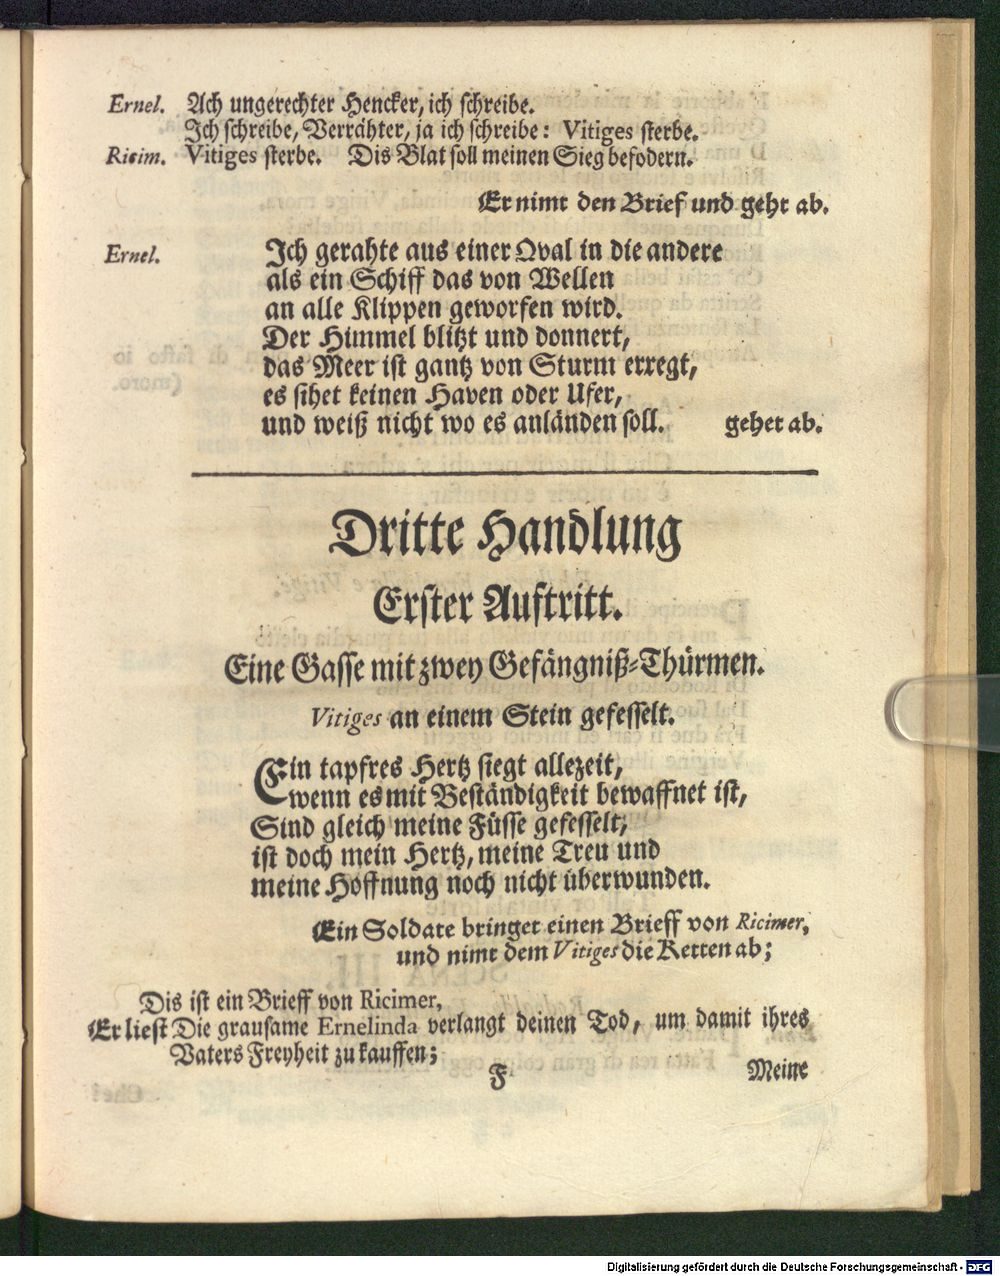 Ernel. Ach ungerechter Hencker, ich schreibe.
Ich schreibe, Verrähter, ja ich schreibe: Vitiges sterbe.
Ricim. Vitiges sterbe. Dis Blat soll meinen Sieg befodern.
Er nimt den Brief und geht ab.
Ernel. Ich gerahte aus einer Qval in die andere
als ein Schiff das von Wellen
an alle Klippen geworfen wird.
Der Himmel blitzt und donnert,
das Meer ist gantz von Sturm erregt,
es sihet keinen Haven oder Ufer,
und weiß nicht wo es anländen soll. gehet ab.
Dritte Handlung
Erster Auftritt.
Eine Gasse mit zwey Gefängniß-Thürmen.
Vitiges an einem Stein gefesselt.
Ein tapfres Hertz siegt allezeit,
wenn es mit Beständigkeit bewaffnet ist,
Sind gleich meine Füsse gefesselt,
ist doch mein Hertz, meine Treu und
meine Hoffnung noch nicht überwunden.
Ein Soldate bringet einen Brieff von Ricimer,
und nimt dem Vitiges die Ketten ab;
Dis ist ein Brieff von Ricimer,
Er liest Die grausame Ernelinda verlangt deinen Tod, um damit ihres
Vaters Freyheit zu kauffen;
F Meine
Digitalisierung gefördert durch die Deutsche Forschungsgemeinschaft - DFG